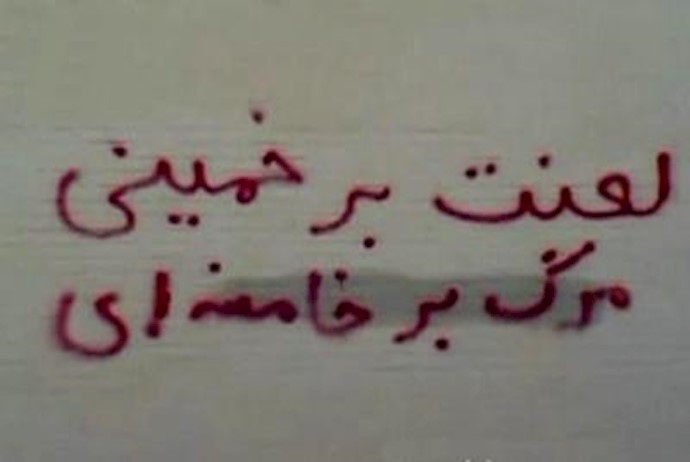 لعنت بر خمینی
مرگ بر خامنه ای